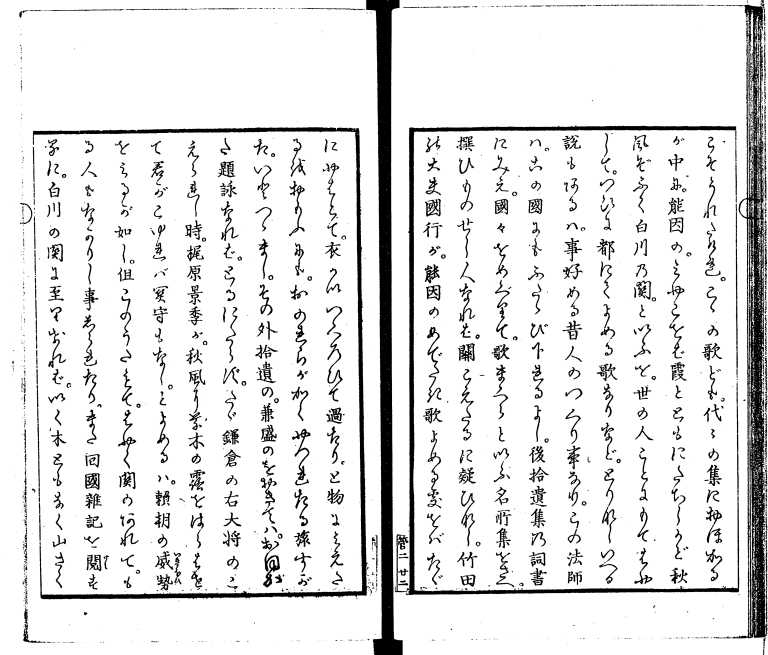 こそうれたけれ。こゝの歌ども。代々の集におほかる
が中に。能因の。みやこをば霞とともにたちしかど秋
風ぞふく白川乃関。といふを。世の人ことにもてはや
して。つひに都にてよめる歌なりなど。とりなしいへる
説もあるハ。事好める昔人のつくり事なり。この法師
ハ。この國にもふたゝび下れるよし。後拾遺集乃詞書
にみえ。國々をめぐりて。歌まくらといふ名所集をさへ。
撰びものせし人なれば。關こえたるに疑ひなし。竹田
の大夫國行が。能因のめでたき歌よめる処をバたゞ
管二 廿二
にやはとて。衣がいつくろひて過たり。と物にみえた
るをおもふにも。おのれらがかくやつれたる旅すが
た。いとつゝまし。その外拾遺の。兼盛のをおきてハ。
た題詠なれば。とるにたらず。たゞ鎌倉の右大将のこ
えられし時。梶原景季が。秋風に草木の露をはらはせ
て君がこゆれバ関守もなし。とよめるハ。頼朝の威勢
をみるが如し。但このうたもて。はやく関のあれて。も
る人もなかりし事しられたり。また回國雜記を閲す
るに。白川の関に至りぬれば。いく木ともなく山さく